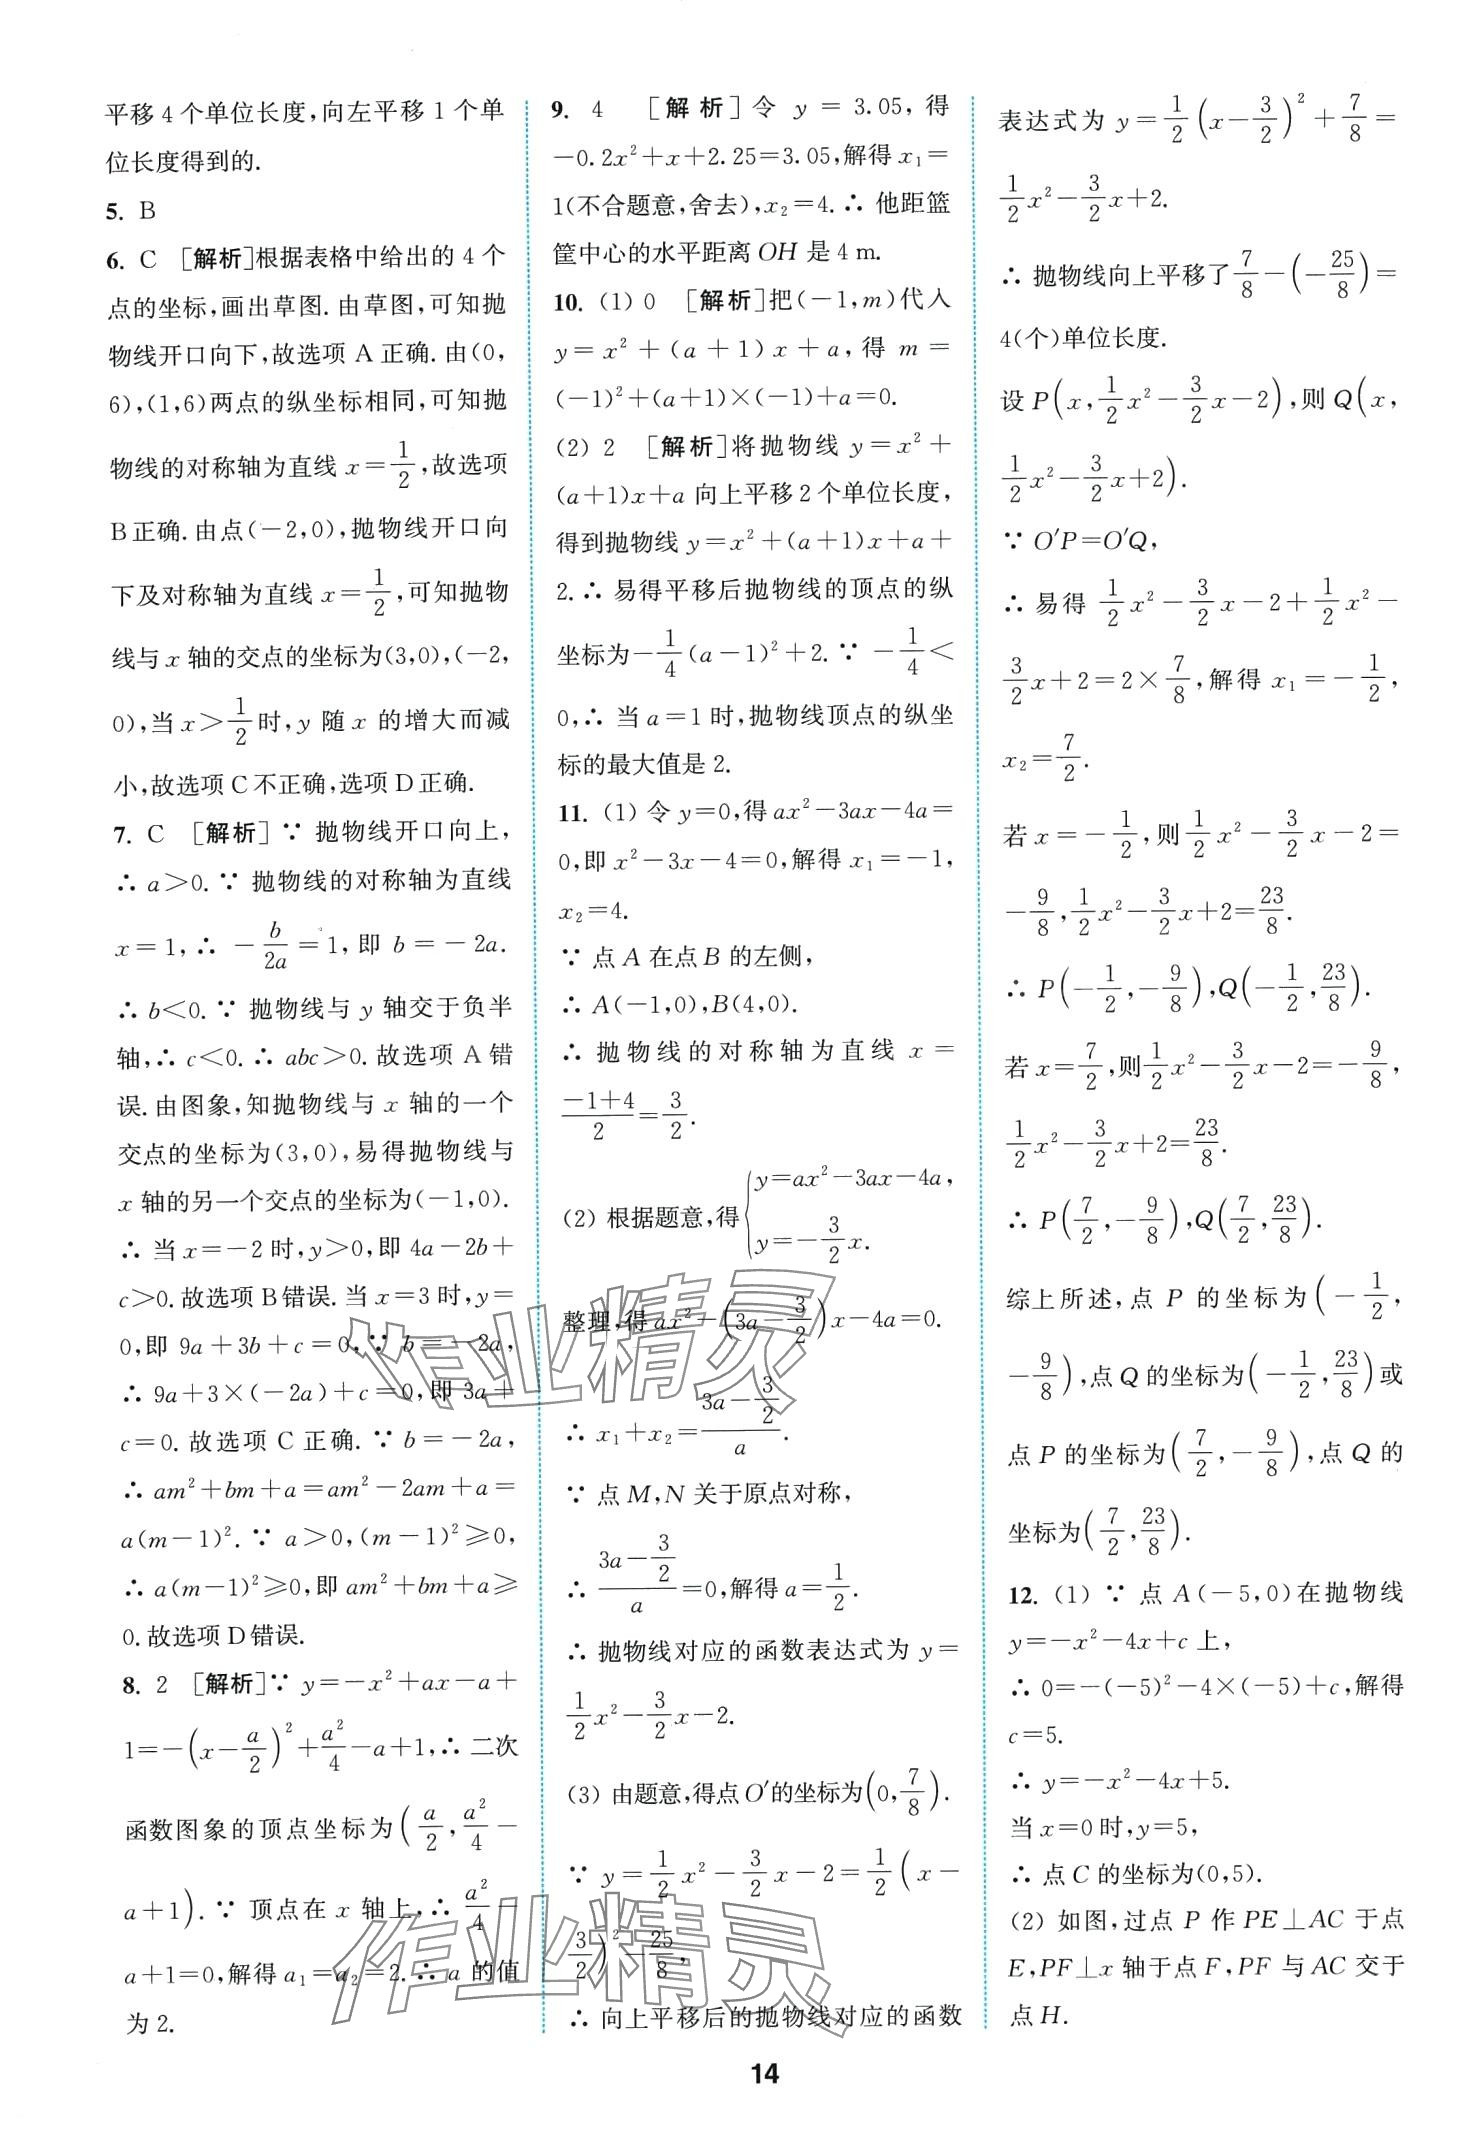 平移 4 个单位长度,向左平移 1 个单
位长度得到的.
5. B
6. C [解析]根据表格中给出的 4 个
点的坐标,画出草图.由草图,可知抛
物线开口向下,故选项 A 正确.由(0,
6),(1,6)两点的纵坐标相同,可知抛
物线的对称轴为直线 x=1/2,故选项
B正确.由点(-2,0),抛物线开口向
下及对称轴为直线 x=1/2,可知抛物
线与 x 轴的交点的坐标为(3,0),(-2,
0),当 x>1/2时,y 随 x 的增大而减
小,故选项C不正确,选项D正确.
7. C [解析]∵ 抛物线开口向上,
∴ a>0.∵ 抛物线的对称轴为直线
x=1,∴ -b/2a=1,即 b=-2a.
∴ b<0.∵ 抛物线与 y 轴交于负半
轴,∴ c<0.∴ abc>0.故选项 A 错
误.由图象,知抛物线与 x 轴的一个
交点的坐标为(3,0),易得抛物线与
x 轴的另一个交点的坐标为(-1,0).
∴ 当 x=-2 时,y>0,即 4a-2b+
c>0.故选项B错误.当 x=3 时,y=
0,即 9a+3b+c=0.∵ b=-2a,
∴ 9a+3×(-2a)+c=0,即 3a+
c=0.故选项 C 正确.∵ b=-2a,
∴ am²+bm+a=am²-2am+a=
a(m-1)².∵ a>0,(m-1)²≥0,
∴ a(m-1)²≥0,即 am²+bm+a≥
0.故选项D错误.
8. 2 [解析]∵ y=-x²+ax-a+
1=-(x-a/2)²+a²/4-a+1,∴ 二次
函数图象的顶点坐标为(a/2,a²/4-
a+1).∵ 顶点在 x 轴上,∴ a²/4-
a+1=0,解得 a₁=a₂=2.∴ a 的值
为 2.
9. 4 [解析]令 y=3.05,得
-0.2x²+x+2.25=3.05,解得 x₁=
1(不合题意,舍去),x₂=4.∴ 他距篮
筐中心的水平距离 OH 是 4 m.
10. (1) 0 [解析]把(-1,m)代入
y=x²+(a+1)x+a,得 m=
(-1)²+(a+1)×(-1)+a=0.
(2) 2 [解析]将抛物线 y=x²+
(a+1)x+a 向上平移 2 个单位长度,
得到抛物线 y=x²+(a+1)x+a+
2.∴ 易得平移后抛物线的顶点的纵
坐标为-1/4(a-1)²+2.∵ -1/4<
0,∴ 当 a=1 时,抛物线顶点的纵坐
标的最大值是 2.
11. (1) 令 y=0,得 ax²-3ax-4a=
0,即 x²-3x-4=0,解得 x₁=-1,
x₂=4.
∵ 点 A 在点 B 的左侧,
∴ A(-1,0),B(4,0).
∴ 抛物线的对称轴为直线 x=
(-1+4)/2=3/2.
(2) 根据题意,得{y=ax²-3ax-4a,
y=-3/2x.
整理,得 ax²-(3a-3/2)x-4a=0.
∴ x₁+x₂=(3a-3/2)/a.
∵ 点 M,N 关于原点对称,
∴ (3a-3/2)/a=0,解得 a=1/2.
∴ 抛物线对应的函数表达式为 y=
1/2x²-3/2x-2.
(3) 由题意,得点O′的坐标为(0,7/8).
∵ y=1/2x²-3/2x-2=1/2(x-
3/2)²-25/8,
∴ 向上平移后的抛物线对应的函数
表达式为 y=1/2(x-3/2)²+7/8=
1/2x²-3/2x+2.
∴ 抛物线向上平移了7/8-(-25/8)=
4(个)单位长度.
设 P(x,1/2x²-3/2x-2),则 Q(x,
1/2x²-3/2x+2).
∵ O′P=O′Q,
∴ 易得 1/2x²-3/2x-2+1/2x²-
3/2x+2=2×7/8,解得 x₁=-1/2,
x₂=7/2.
若 x=-1/2,则1/2x²-3/2x-2=
-9/8,1/2x²-3/2x+2=23/8.
∴ P(-1/2,-9/8),Q(-1/2,23/8).
若 x=7/2,则1/2x²-3/2x-2=-9/8,
1/2x²-3/2x+2=23/8.
∴ P(7/2,-9/8),Q(7/2,23/8).
综上所述,点 P 的坐标为(-1/2,
-9/8),点Q的坐标为(-1/2,23/8)或
点 P 的坐标为(7/2,-9/8),点 Q 的
坐标为(7/2,23/8).
12. (1) ∵ 点 A(-5,0)在抛物线
y=-x²-4x+c 上,
∴ 0=-(-5)²-4×(-5)+c,解得
c=5.
∴ y=-x²-4x+5.
当 x=0 时,y=5,
∴ 点 C 的坐标为(0,5).
(2) 如图,过点 P 作 PE⊥AC 于点
E,PF⊥x 轴于点 F,PF 与 AC 交于
点 H.
作业精灵
作业精灵
14